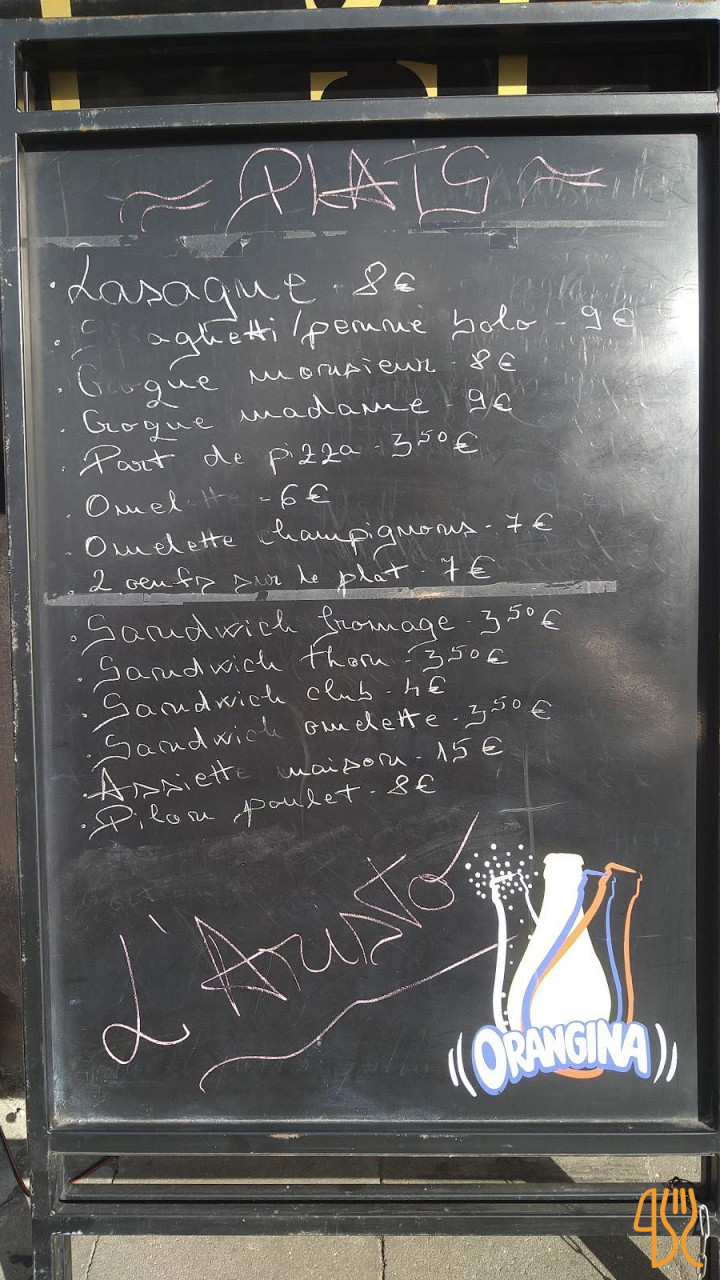 ~ PLATS ~
. Lasagne - 8€
. Spaghetti/penne bolo - 9€
. Croque monsieur - 8€
. Croque madame - 9€
. Part de pizza - 3,50€
. Omelette - 6€
. Omelette champignons - 7€
. 2 oeufs sur le plat - 7€
. Sandwich fromage - 3,50€
. Sandwich thon - 3,50€
. Sandwich club - 4€
. Sandwich omelette - 3,50€
. Assiette maison - 15€
. Pilon poulet - 8€
L'Aristo
ORANGINA